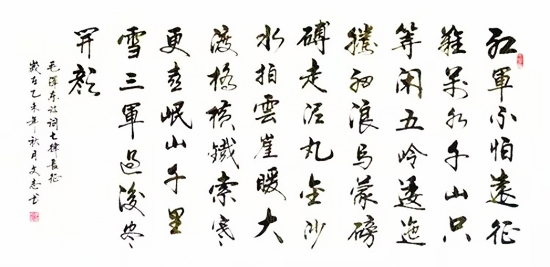 紅軍不怕遠征
難萬水千山只
等閑五嶺逶迤
騰細浪烏蒙磅
礴走泥丸金沙
水拍雲崖暖大
渡橋橫鐵索寒
更喜岷山千里
雪三軍過後盡
開顏
毛澤東詩詞七律長征
歲在乙未年秋月文志书